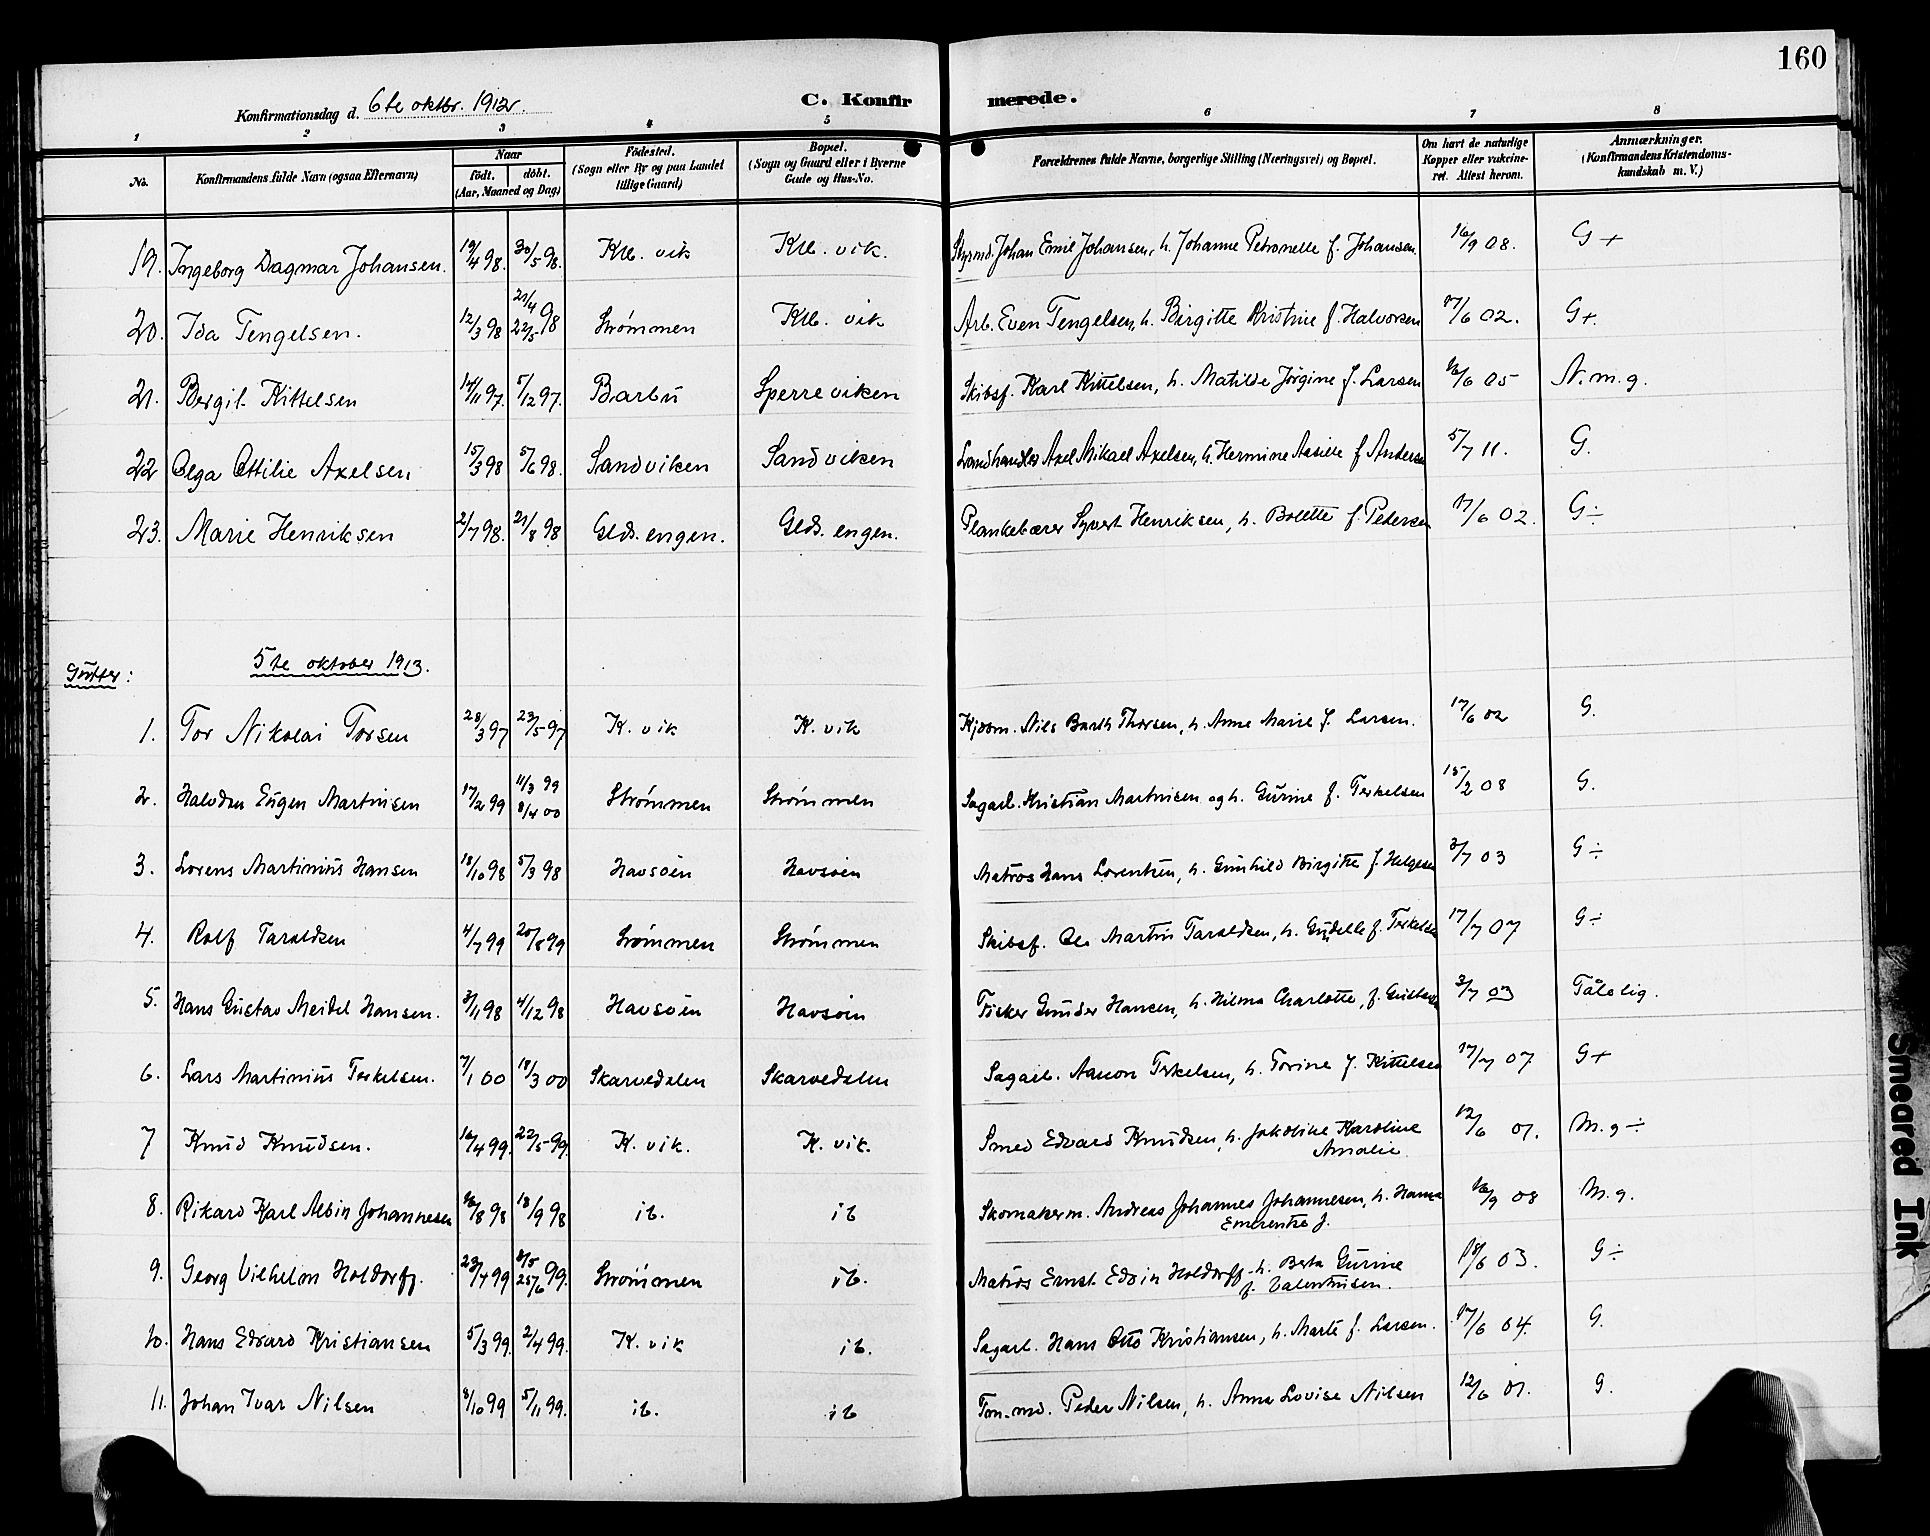 160
Konfirmationsdag d. 6te oktbr. 1912.
C. Konfirmerede.
1 2 3 4 5 6 7 8
No. Konfirmandens fulde Navn (ogsaa Efternavn) Naar født. døbt. (Aar, Maaned og Dag) Fødested. (Sogn eller By og paa Landet tillige Gaard) Bopæl. (Sogn og Gaard eller i Byerne Gade og Hus-No. Forældrenes fulde Navne, borgerlige Stilling (Næringsvei) og Bopæl. Om havt de naturlige Kopper eller vakcineret. Attest herom. Anmærkninger. (Konfirmandens Kristendomskundskab m. V.)
19. Ingeborg Dagmar Johansen. 19/4 98. 30/5 98. Klb. vik Klb. vik. Styrmd. Johan Emil Johansen, h. Johanne Petronelle f. Johansen. 16/9 08. G +
20. Ida Tengelsen. 12/3 98 21/4 22/5 98 Strømmen Klb. vik Arb. Even Tengelsen, h. Birgitte Kristine f. Halvorsen 17/6 02. G+.
21. Bergit Kittelsen 14/11 97. 5/12 97. Barbu Sperreviken Skibsf. Karl Kittelsen, h. Matilde Jørgine f. Larsen 16/6 05 N. m. g.
22 Olga Ottilie Axelsen 15/3 98 5/6 98. Sandviken Sandviken Landhandler Axel Mikael Axelsen, h. Hermine f. Andersen 5/7 11. G.
23. Marie Henriksen 2/7 98. 21/8 98 Glds. engen. Glds. engen. Plankebærer Syvert Henriksen, h. Bolette f. Pedersen 17/6 02. G ÷
Gutter: 5te oktober 1913.
1. Tor Nikolai Torsen 28/3 97 23/5 97 K. vik K. vik Kjøbm. Nils Barth Thorsen, h. Anne Marie f. Larsen. 17/6 02 G.
2. Halvdan Eugen Martinsen 17/2 99 11/3 99 8/4 00 Strømmen Strømmen Sagarb. Kristian Martinsen og h. Gurine f. Terkelsen 15/2 08 G.
3. Lorens Martinius Hansen 18/10 98 5/3 98 Havsøen Havsøen Matros Hans Lorentzen, h. Gunhild Birgitte f. Helgesen 3/7 03 G ÷
4. Rolf Taraldsen 4/7 99 20/8 99 Strømmen Strømmen Skibsf. Ole Martin Taraldsen, h. f. Terkelsen 17/7 07 G ÷
5. Hans Gustav Meidel Hansen. 3/11 98 4/12 98 Havsøen Havsøen Fisker Gunder Hansen, h. Hilma Charlotte, f. 3/7 03 Tålelig.
6. Lars Martinius Terkelsen. 7/1 00 18/3 00 Skarvedalen Skarvedalen Sagarb. Aanon Terkelsen, h. Torine f. Kittelsen 17/7 07 G +
7 Knud Knudsen. 16/4 99. 22/5 99. K. vik. K. vik. Smed Edvard Knudsen, h. Jakobine Karoline
Amalie 12/6 01. M. g ÷
8. Rikard Karl Albin Johannesen 16/8 98 18/9 98 ib. ib Skomakerm. Andreas Johannes Johannesen, h. Hanna
Emerentse f. 16/9 08 M. g.
9. Georg Vilhelm Holdorff. 23/4 99 8/5 25/6 99. Strømmen ib. Matros Ernst Edvin Holdorff h. Berta Gurine
f. Valentinsen. 18/6 03. G ÷
10. Hans Edvard Kristiansen 5/3 99. 2/4 99. K. vik ib. Sagarb. Hans Otto Kristiansen, h. Marte f. Larsen. 17/6 04. G.
11. Johan Ivar Nilsen 8/10 99 5/11 99. ib. ib Tøm.md. Peder Nilsen, h. Anna Lovise Nilsen 12/6 01. G.
Smeared Ink